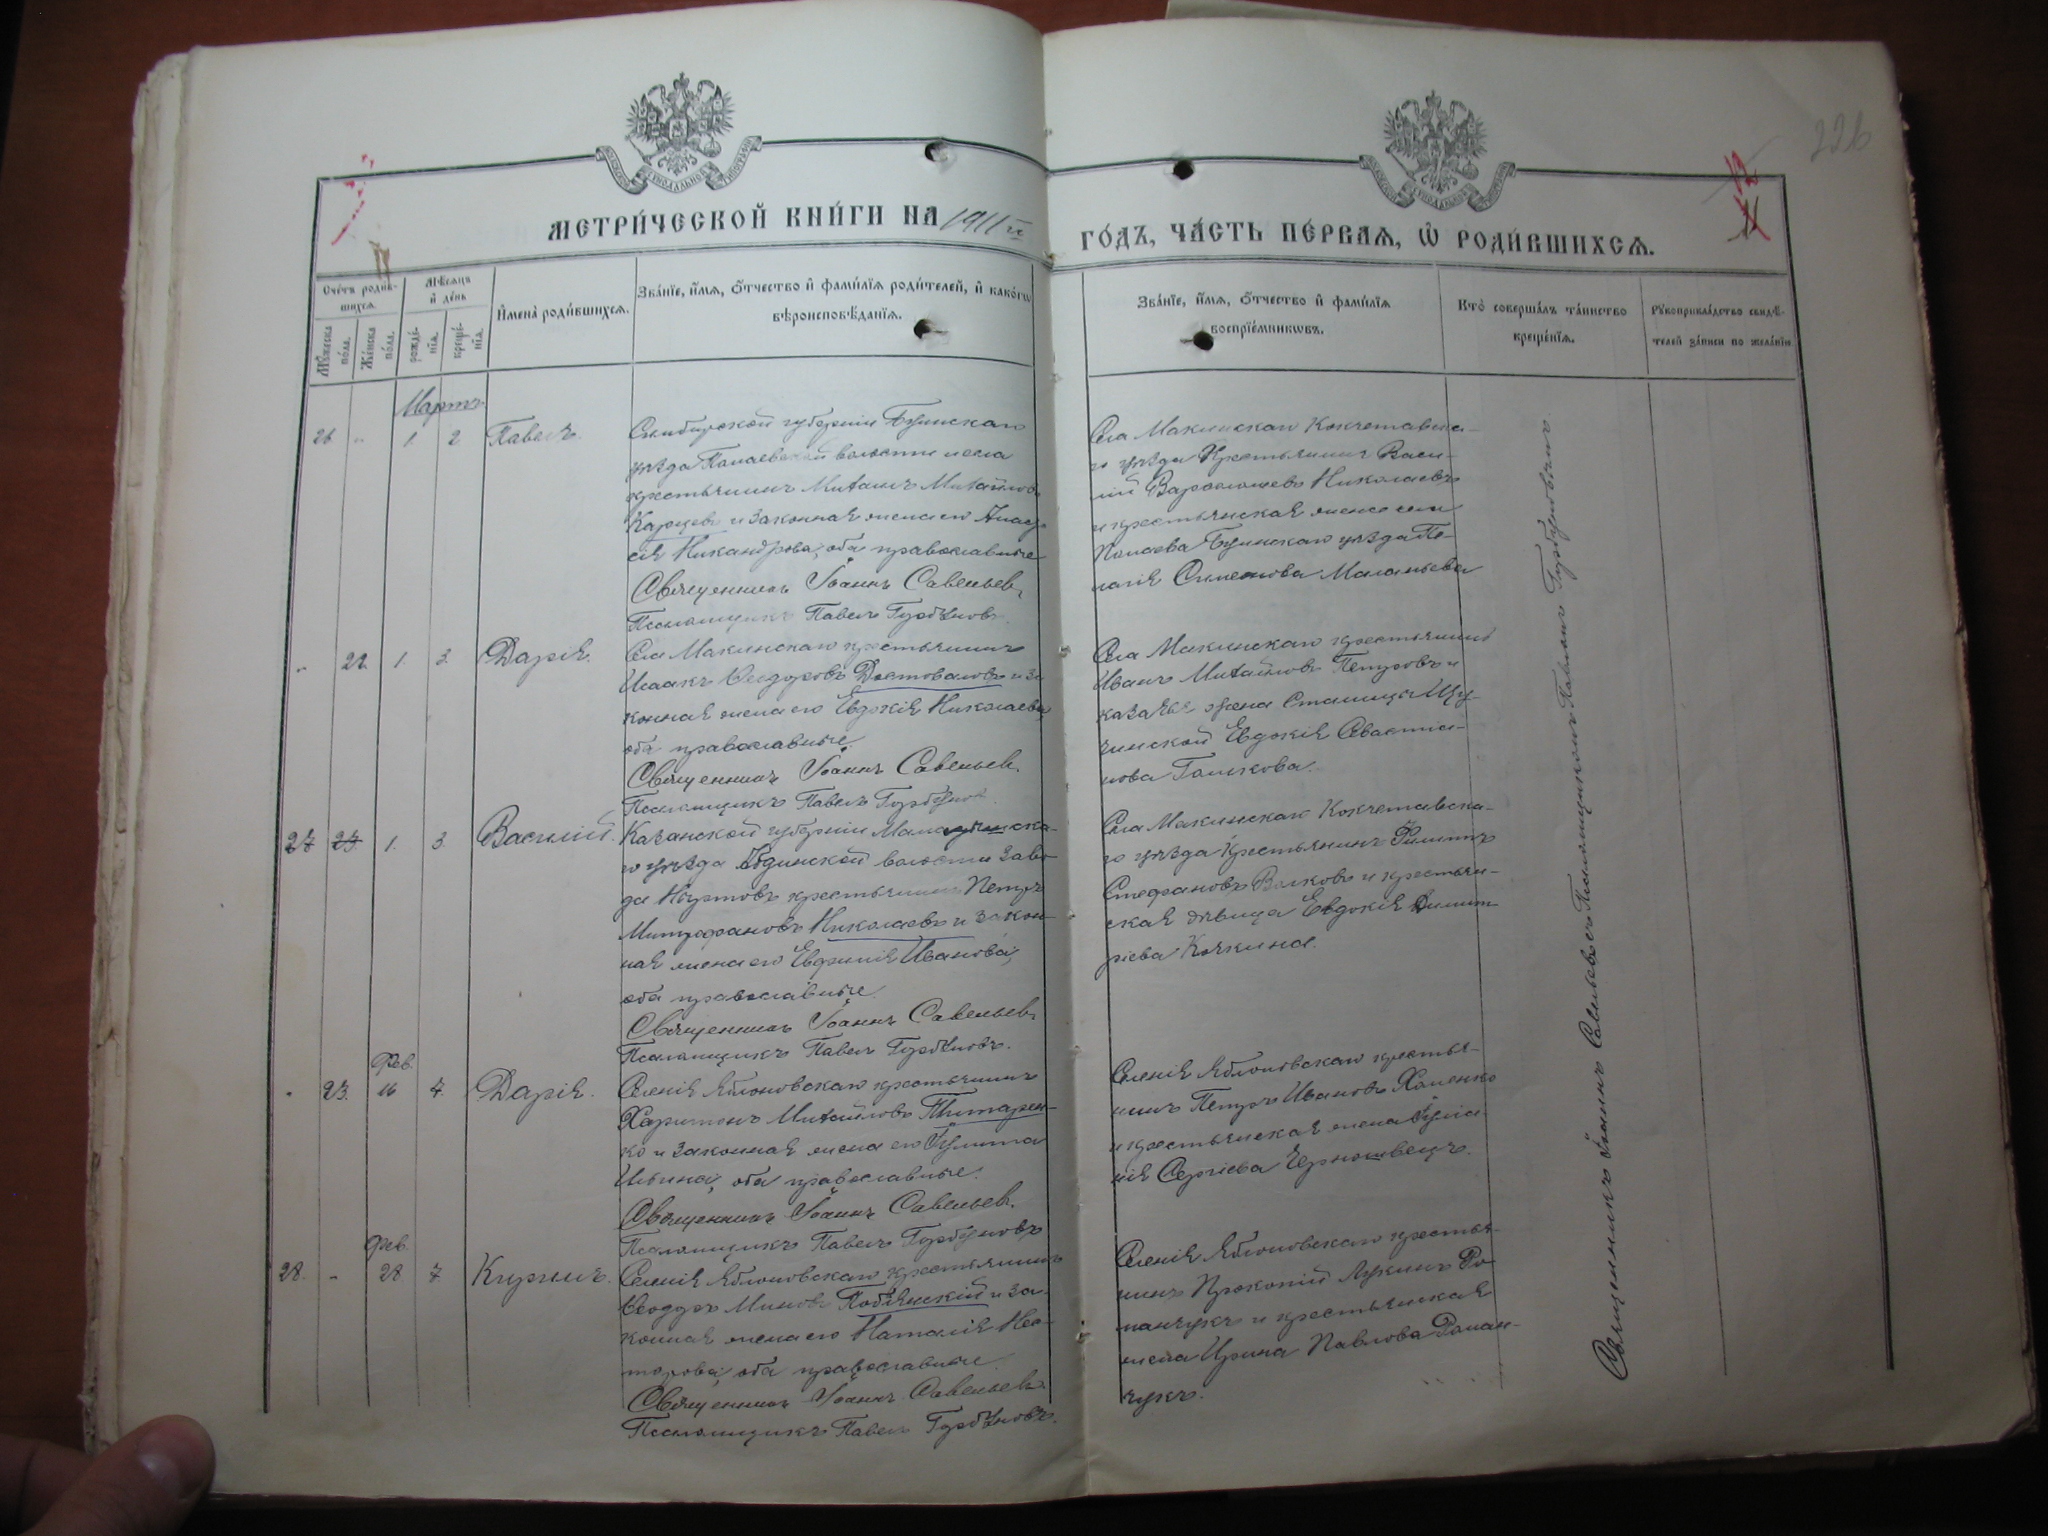 226
МЕТРИ́ЧЕСКОЙ КНИ́ГИ НА 1911 й
ГО́ДЪ, ЧА́СТЬ ПЕ́РВАЯ, Ѡ РОДИ́ВШИХСЯ.
Сче́тъ роди́в-
шихся.
Мѣ́сяцъ
и҆ де́нь
Мꙋ́жеска
по́ла.
Же́нска
по́ла.
рожде́-
нїя.
креще́-
нїя.
И҆мена̀ роди́вшихся.
Зва́нїе, и҆́мя, ѻ҆́тчество и҆ фами́лїя роди́телей, и҆ како́гѡ
вѣроисповѣ́данїя.
Зва́нїе, и҆́мя, ѻ҆́тчество и҆ фами́лїя
воспрїе́мникѡвъ.
Кто̀ соверша́лъ та́инство
креще́нїя.
Рꙋкоприкла́дство свидѣ́-
телей за́писи по жела́нїю
Мартъ
26 „ 1. 2 Павелъ.
Симбирской губернии Буинскаго
уѣзда волости села
крестьянинъ Михаилъ Михайловъ
и законная жена его Анаста-
сія Никандрова, оба православные
Священникъ Іоаннъ Савельевъ
Псаломщикъ Павелъ Горбуновъ.
Села Макинскаго Кокчетавска-
го уѣзда Крестьянинъ Васи-
лій Николаевъ
и крестьянская жена села
Буинскаго уѣзда Пе-
лагія Симеонова Маланьева
„ 22 1. 3. Дарія.
Села Макинскаго крестьянинъ
Исаакъ Ѳеодоровъ Достоваловъ и за-
конная жена его Евдокія Николаева,
оба православные.
Священникъ Іоаннъ Савельевъ.
Псаломщикъ Павелъ Горбуновъ.
Села Макинскаго крестьянинъ
Иванъ Михайловъ Петровъ и
казачья жена Станицы Щу-
чинской Евдокія Севастіа-
нова
27 23 1. 3. Василій.
Казанской губерніи Мамадышска-
го уѣзда волости Заво-
да крестьянинъ Петръ
Митрофановъ Николаевъ и закон-
ная жена его Евфимія Иванова,
оба православные.
Священникъ Іоаннъ Савельевъ
Псаломщикъ Павелъ Горбуновъ.
Села Макинскаго Кокчетавска-
го уѣзда Крестьянинъ Филиппъ
Стефановъ Волковъ и крестьян-
ская дѣвица Евдокія Димит-
ріева Кочкина.
Фев.
„ 23. 16 7. Дарія.
Селенія Яблоновскаго крестьянинъ
Харитонъ Михайловъ Титарен-
ко и законная жена его Іулитта
Ильина, оба православные.
Священникъ Іоаннъ Савельевъ.
Псаломщикъ Павелъ Горбуновъ
Селенія Яблоновскаго крестья-
нинъ Петръ Ивановъ Хоменко
и крестьянская жена Іуліа-
нія Сергіева
Фев.
28. „ 28 7 Кириллъ.
Селенія Яблоновскаго крестьянинъ
Ѳеодоръ Миновъ и за-
конная жена его Наталія Нес-
торова, оба православные.
Священникъ Іоаннъ Савельевъ
Псаломщикъ Павелъ Горбуновъ.
Селенія Яблоновскаго крестья-
нинъ Прокопій Лукинъ Ро-
манчукъ и крестьянская
жена Ирина Павлова Роман-
чукъ.
Священникъ Іоаннъ Савельевъ съ Псаломщикомъ Павломъ Горбуновымъ